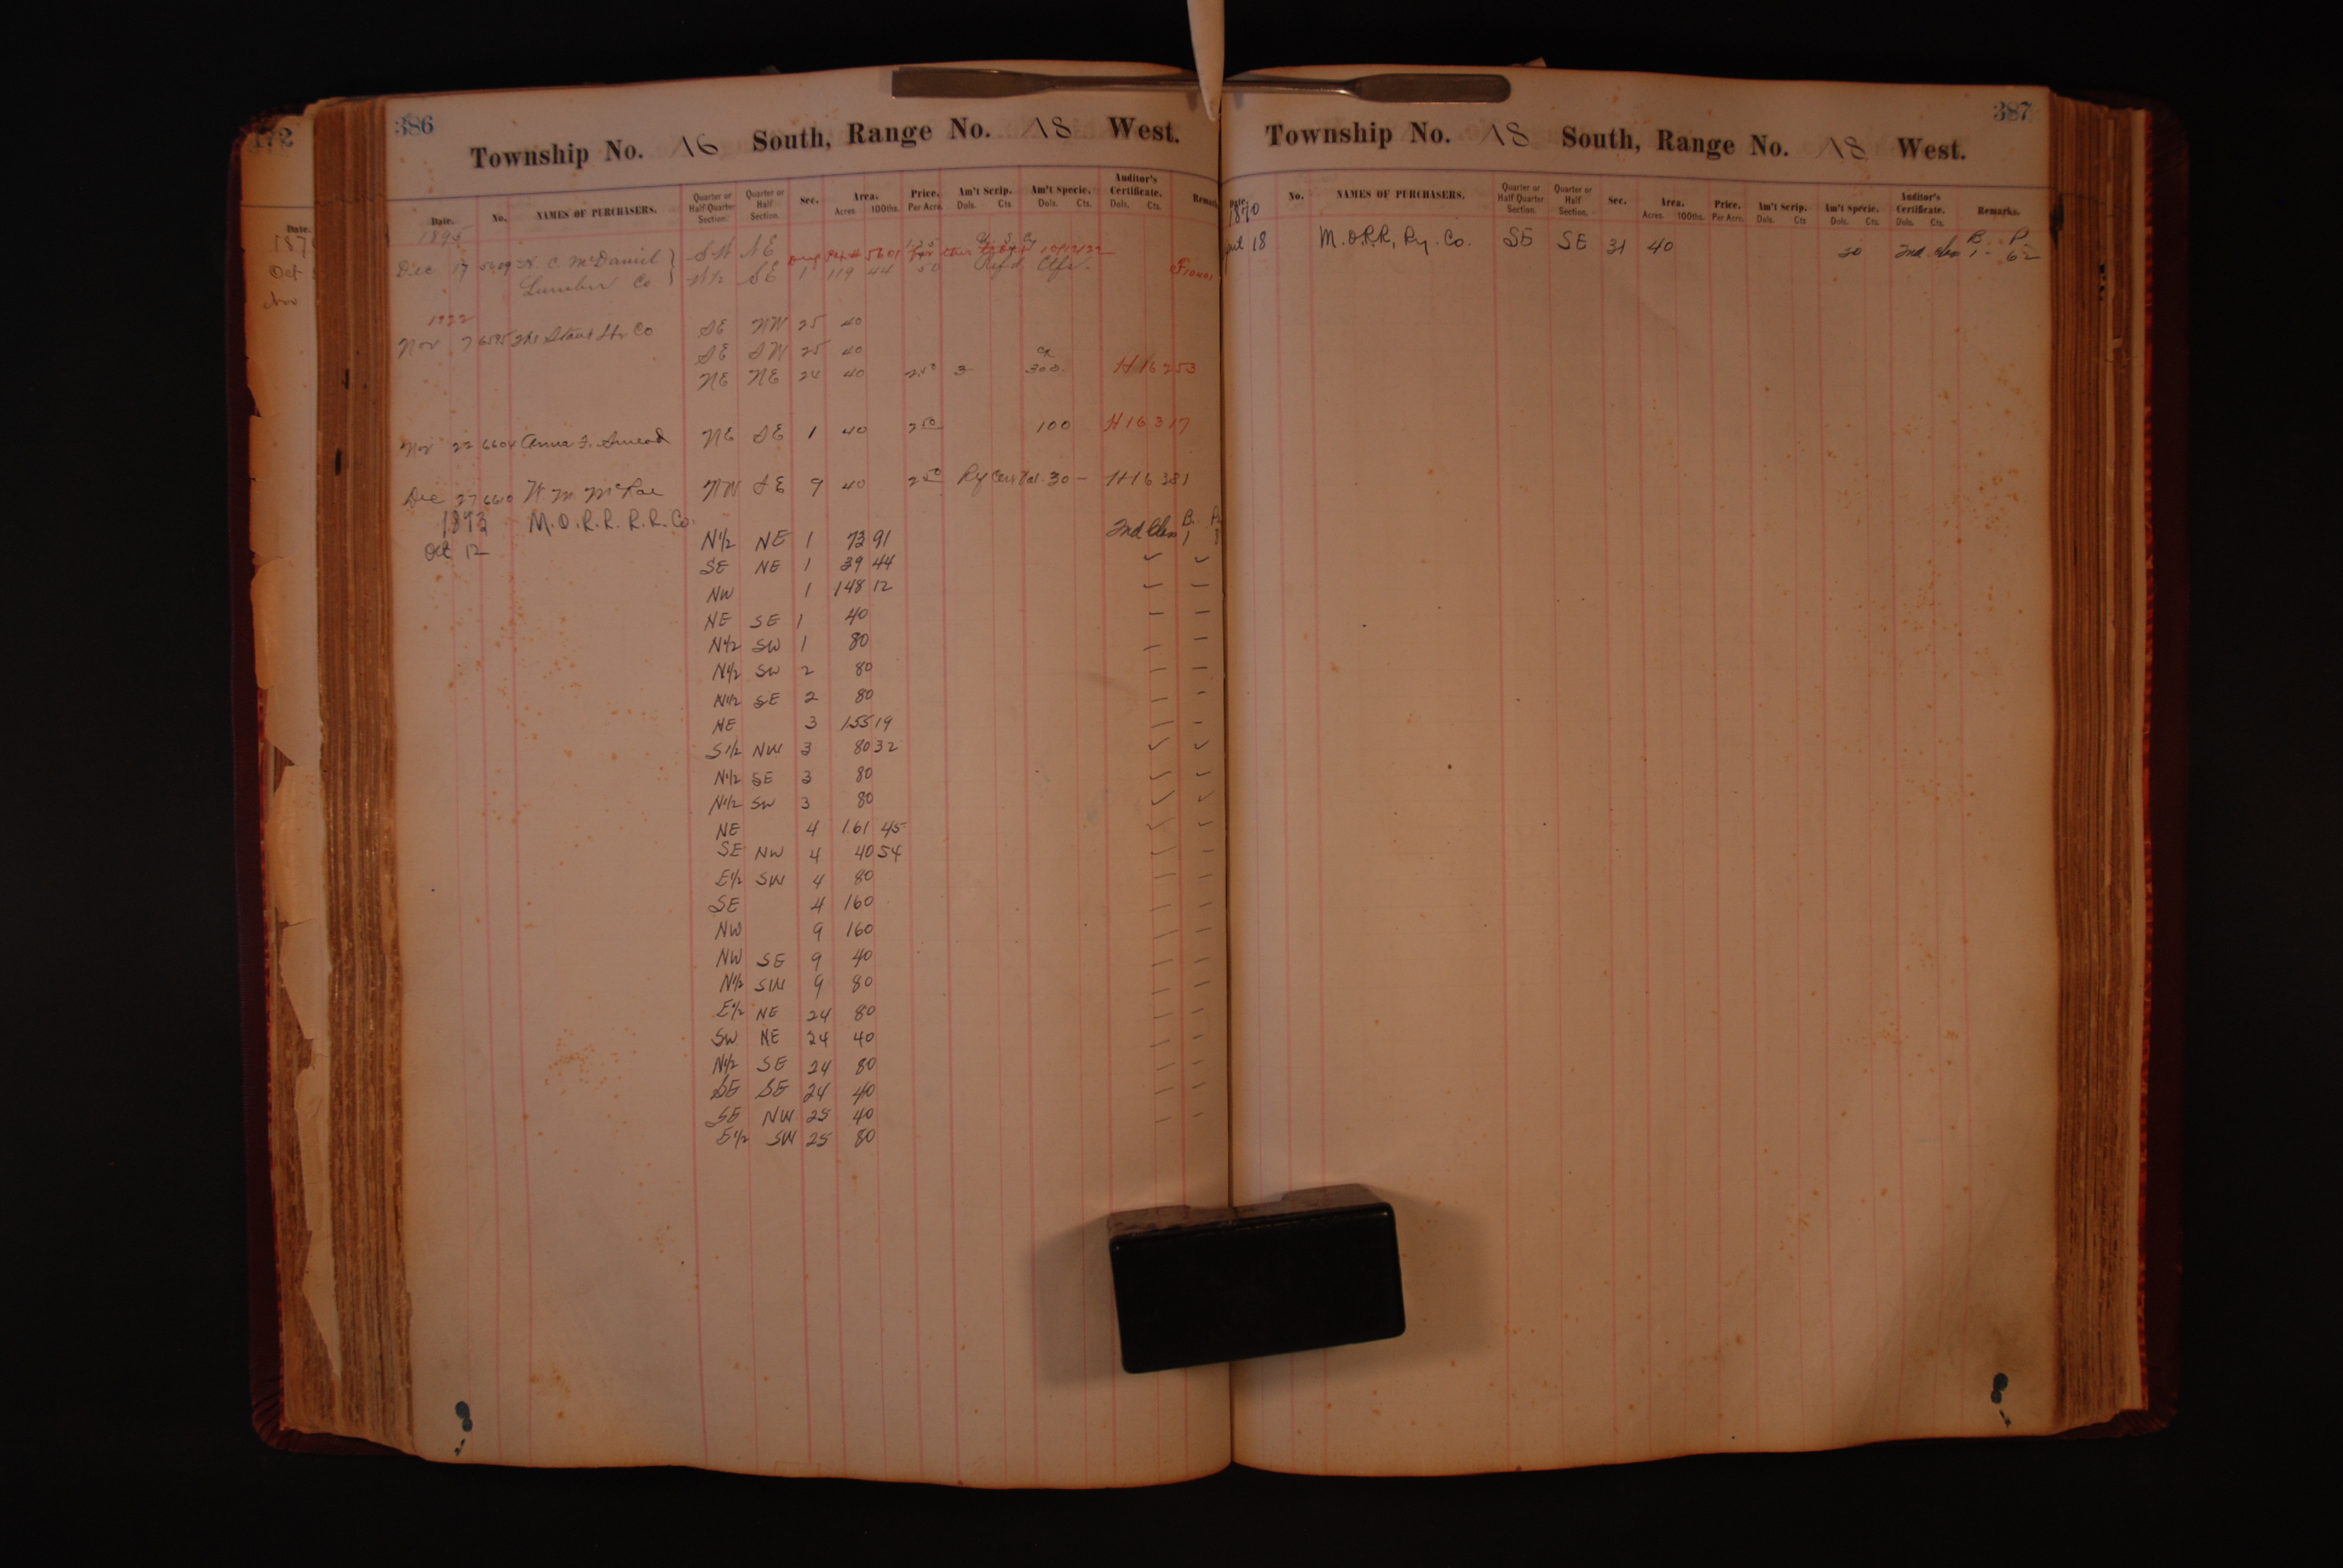 172
Date.
187
Oct
Nov
386
Township No. 16 South, Range No. 18 West.
Date. No. NAMES OF PURCHASERS. Quarter or Half Quarter Section. Quarter or Half Section. Sec. Area. Acres 100ths. Price. Per Acre. Am't Scrip. Dols. Cts Am't Specie. Dols. Cts. Auditor's Certificate. Dols. Cts. Remarks
1895
Dec 17 C. McDaniel SW NE
Lumber Co N½ SE 1 119 44 50
1922
Nov 7 6595 Lbr Co SE NW 25 40
SE SW 25 40
NE NE 24 40 2.50 3 300. H16253
Nov 22 6604 Anna F. NE SE 1 40 2 50 100 H16317
Dec 27 6610 W M McRae NW SE 9 40 2 50 30 - H16381
1893 M.O.R.R. R.R. Co.
Oct 12 N½ NE 1 73 91 2nd Class B. 1
SE NE 1 39 44
NW 1 148 12
NE SE 1 40
N½ SW 1 80
N½ SW 2 80
N½ SE 2 80
NE 3 155 19
S½ NW 3 80 32
N½ SE 3 80
N½ SW 3 80
NE 4 161 45
SE NW 4 40 54
E½ SW 4 80
SE 4 160
NW 9 160
NW SE 9 40
N½ SW 9 80
E½ NE 24 80
SW NE 24 40
N½ SE 24 80
SE SE 24 40
SE NW 25 40
E½ SW 25 80
387
Township No. 18 South, Range No. 18 West.
Date. No. NAMES OF PURCHASERS. Quarter or Half Quarter Section. Quarter or Half Section. Sec. Area. Acres 100ths. Price. Per Acre. Am't Scrip. Dols. Cts Am't Specie. Dols. Cts. Auditor's Certificate. Dols. Cts. Remarks.
1870
18 M.O.R.R. Ry. Co. SE SE 31 40 30 2nd class B. 1 - P. 62